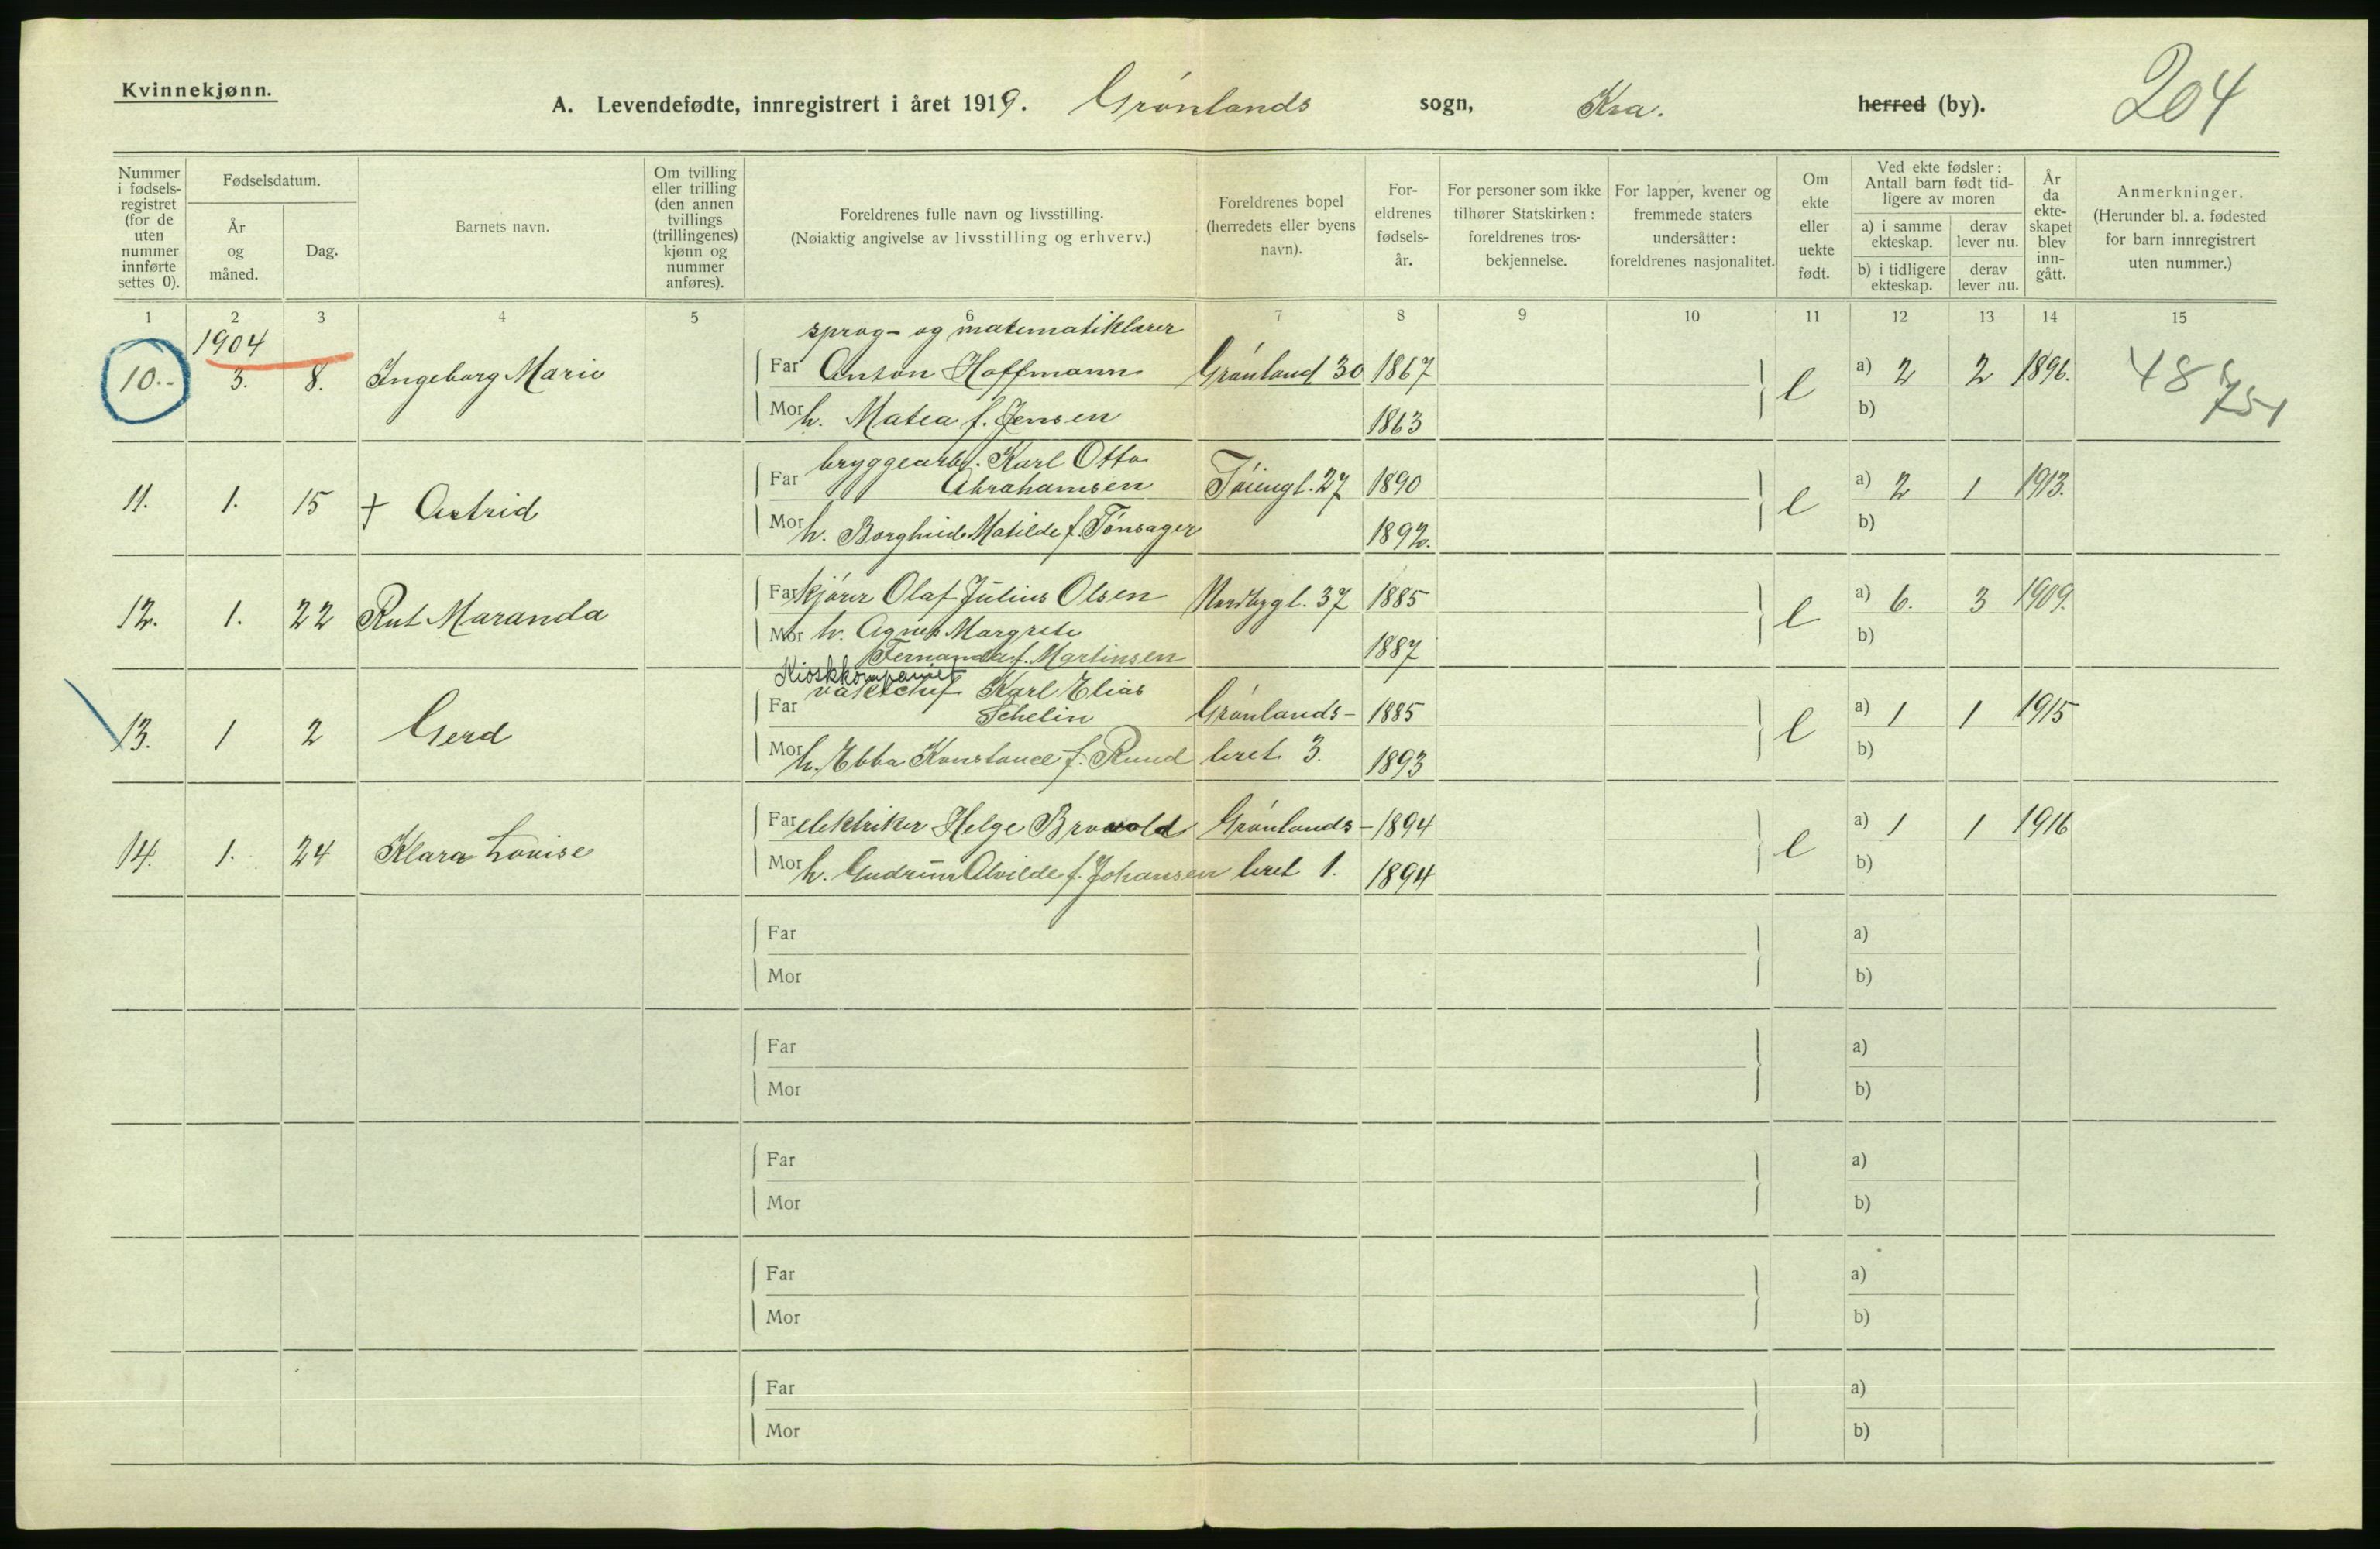 Kvinnekjønn.
A. Levendefødte, innregistrert i året 1919. Grønlands sogn, Kra. herred (by). 204
Nummer i fødsels- registret (for de uten nummer innførte settes 0).
Fødselsdatum.
År og måned.
Dag.
Barnets navn.
Om tvilling eller trilling (den annen tvillings (trillingenes) kjønn og nummer anføres).
Foreldrenes fulle navn og livsstilling.
(Nøiaktig angivelse av livsstilling og erhverv.)
Foreldrenes bopel (herredets eller byens navn).
For- eldrenes fødsels- år.
For personer som ikke tilhører Statskirken: foreldrenes tros- bekjennelse.
For lapper, kvener og fremmede staters undersåtter: foreldrenes nasjonalitet.
Om ekte eller uekte født.
Ved ekte fødsler: Antall barn født tid- ligere av moren
a) i samme ekteskap.
derav lever nu.
b) i tidligere ekteskap.
derav lever nu.
År da ekte- skapet blev inn- gått.
Anmerkninger.
(Herunder bl. a. fødested for barn innregistrert uten nummer.)
1 2 3 4 5 6 7 8 9 10 11 12 13 14 15
1904 sprog- og matematiklærer
10.- 3. 8. Ingeborg Marie Far Anton Hoffmann Grønland 30 1867 e a) 2 2 1896. 48
751
Mor h. Matea f. Jensen 1863 b)
bryggearb. Karl Otto
11. 1. 15 + Astrid Far Abrahamsen Tøiengt. 27 1890 e a) 2 1 1913.
Mor h. Borghild Matilde f. Tønsager 1892. b)
12. 1. 22 Rut Maranda Far kjører Olaf Julius Olsen Nordbygt. 37 1885 e a) 6. 3 1909.
Mor h. Agnes Margrete b)
Fernanda f. Martinsen 1887
Kioskkompaniet
vaktchef Karl Elias
13. 1 2 Gerd Far Schelin Grønlands- 1885 e a) 1 1 1915
Mor h. Ebba Konstance f. Ruud leret 3. 1893 b)
14. 1. 24 Klara Louise Far elektriker Helge Brovold Grønlands- 1894 e a) 1 1 1916
Mor h. Gudrun Alvilde f. Johansen leret 1. 1894 b)
Far a)
Mor b)
Far a)
Mor b)
Far a)
Mor b)
Far a)
Mor b)
Far a)
Mor b)